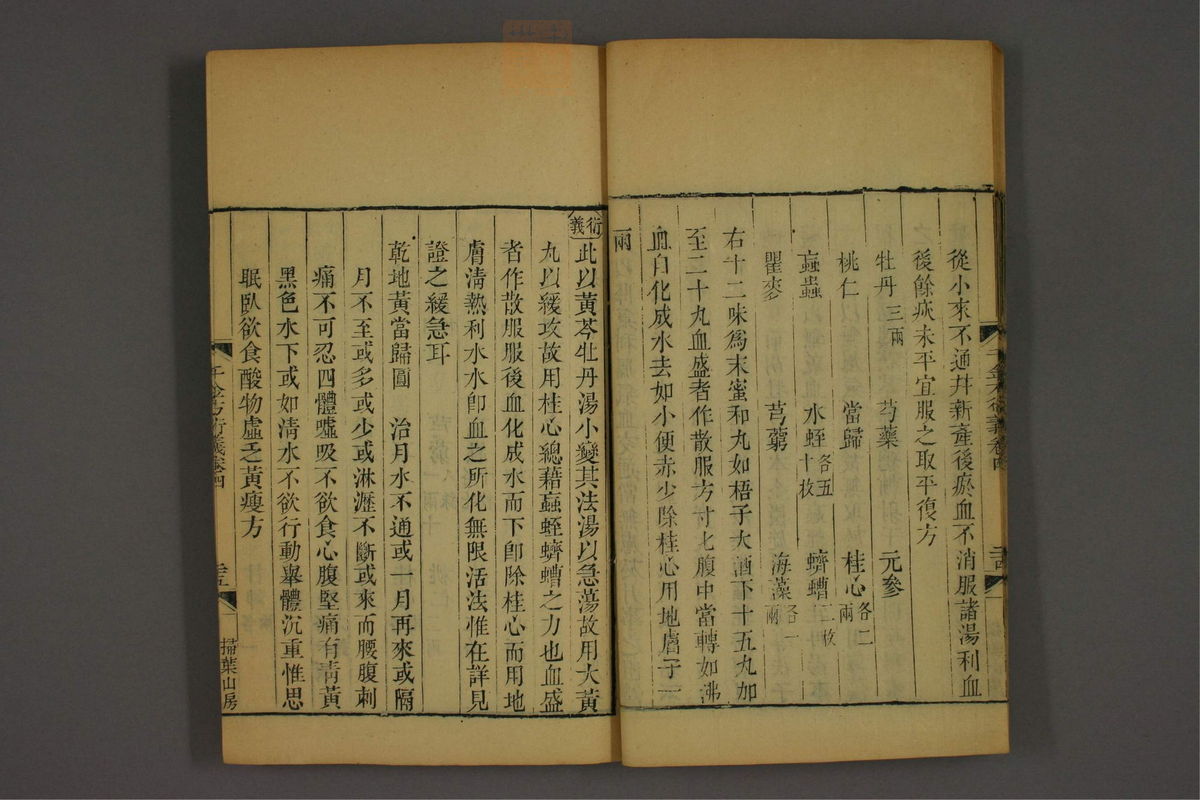 從小來不通幷新產後瘀血不消服諸湯利血
後餘疢未平宜服之取平復方
牡丹三兩 芍藥 元參
桃仁 當歸 桂心各二兩
蝱蟲 水蛭各五十枚 蠐螬二十枚
瞿麥 芎藭 海藻各一兩
右十二味爲末蜜和丸如梧子大酒下十五丸加
至二十丸血盛者作散服方寸匕腹中當轉如沸
血自化成水去如小便赤少除桂心用地膚子一
兩
衍義 此以黃芩牡丹湯小變其法湯以急蕩故用大黃
丸以緩攻故用桂心總藉蝱蛭蠐螬之力也血盛
者作散服服後血化成水而下卽除桂心而用地
膚淸熱利水水卽血之所化無限活法惟在詳見
證之緩急耳
乾地黃當歸圓 治月水不通或一月再來或隔
月不至或多或少或淋瀝不斷或來而腰腹刺
痛不可忍四體噓吸不欲食心腹堅痛有靑黃
黑色水下或如淸水不欲行動舉體沉重惟思
眠臥欲食酸物虛乏黃瘦方
千金方衍義卷四
三五
掃葉山房